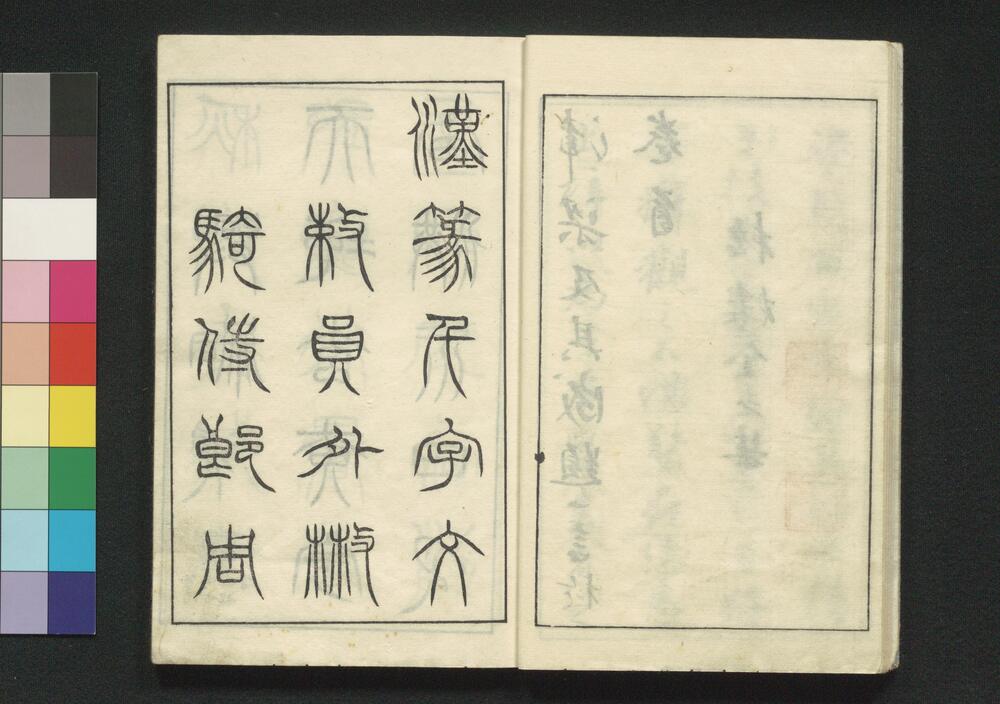 漢篆千字文
敕員外散
騎侍郎周